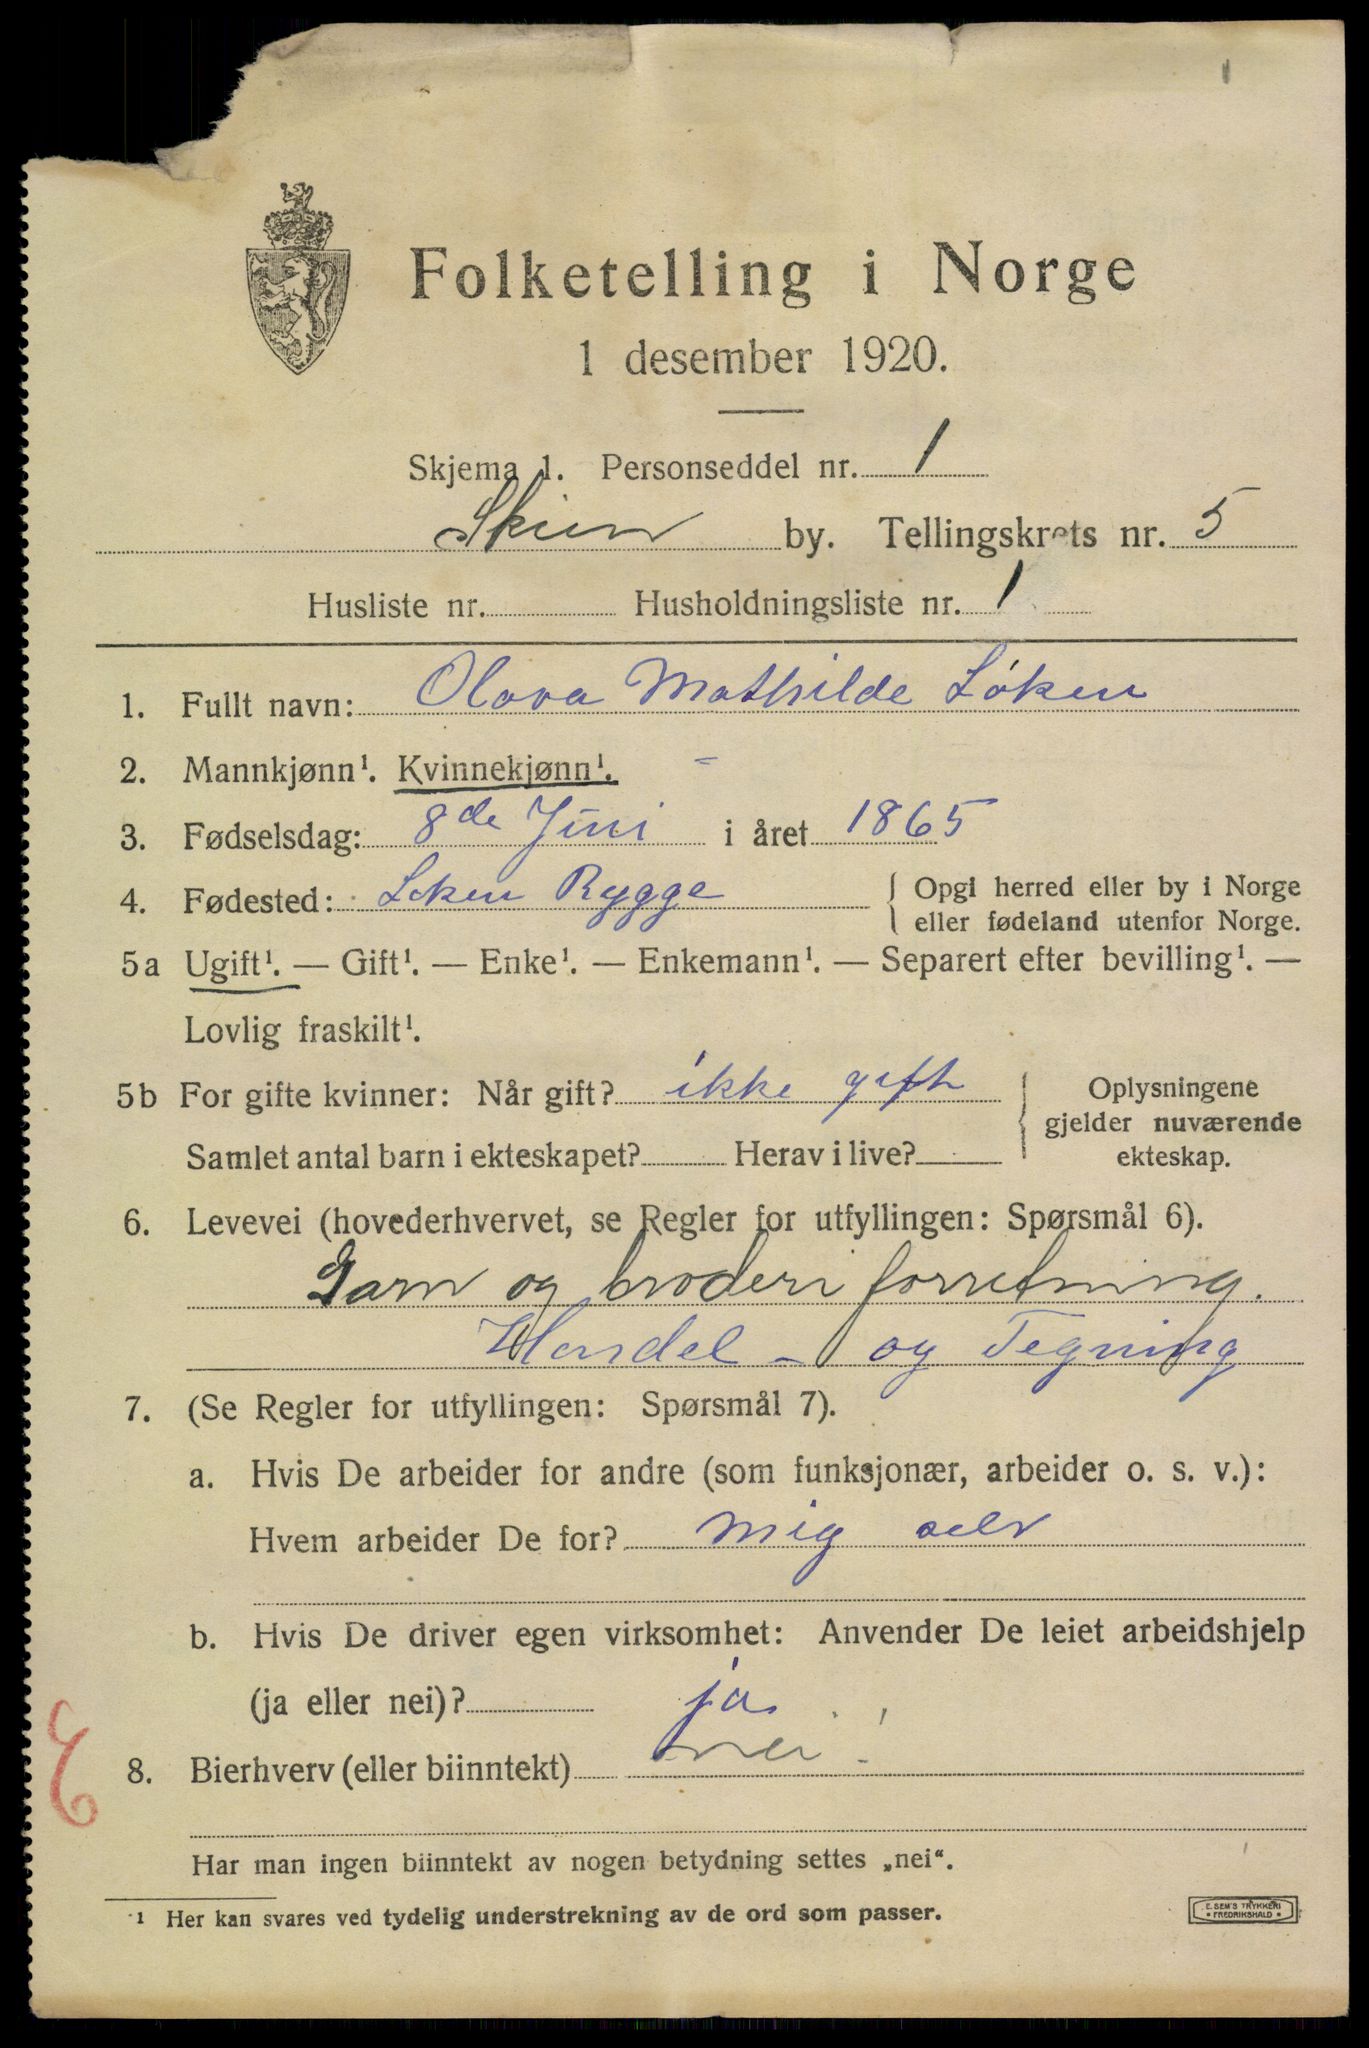 1
Folketelling i Norge
1 desember 1920.
Skjema 1. Personseddel nr. 1
Skien by. Tellingskrets nr. 5
Husliste nr. Husholdningsliste nr. 1
1. Fullt navn: Olava Mathilde Løken
2. Mannkjønn¹. Kvinnekjønn¹.
3. Fødselsdag: 8de Juni i året 1865
4. Fødested: Løken Rygge { Opgi herred eller by i Norge
eller fødeland utenfor Norge.
5a Ugift¹. — Gift¹. — Enke¹. — Enkemann¹. — Separert efter bevilling¹. —
Lovlig fraskilt¹.
5b For gifte kvinner: Når gift? ikke gift
Samlet antal barn i ekteskapet? Herav i live?
Oplysningene
gjelder nuværende
ekteskap.
6. Levevei (hovederhvervet, se Regler for utfyllingen: Spørsmål 6).
Garn og broderi forretning.
Handel - og Tegning
7. (Se Regler for utfyllingen: Spørsmål 7).
a. Hvis De arbeider for andre (som funksjonær, arbeider o. s. v.):
Hvem arbeider De for? mig selv
b. Hvis De driver egen virksomhet: Anvender De leiet arbeidshjelp
(ja eller nei)? ja
8. Bierhverv (eller biinntekt) nei!
Har man ingen biinntekt av nogen betydning settes „nei“.
¹ Her kan svares ved tydelig understrekning av de ord som passer.
E. SEM'S TRYKKERI
• FREDRIKSHALD •